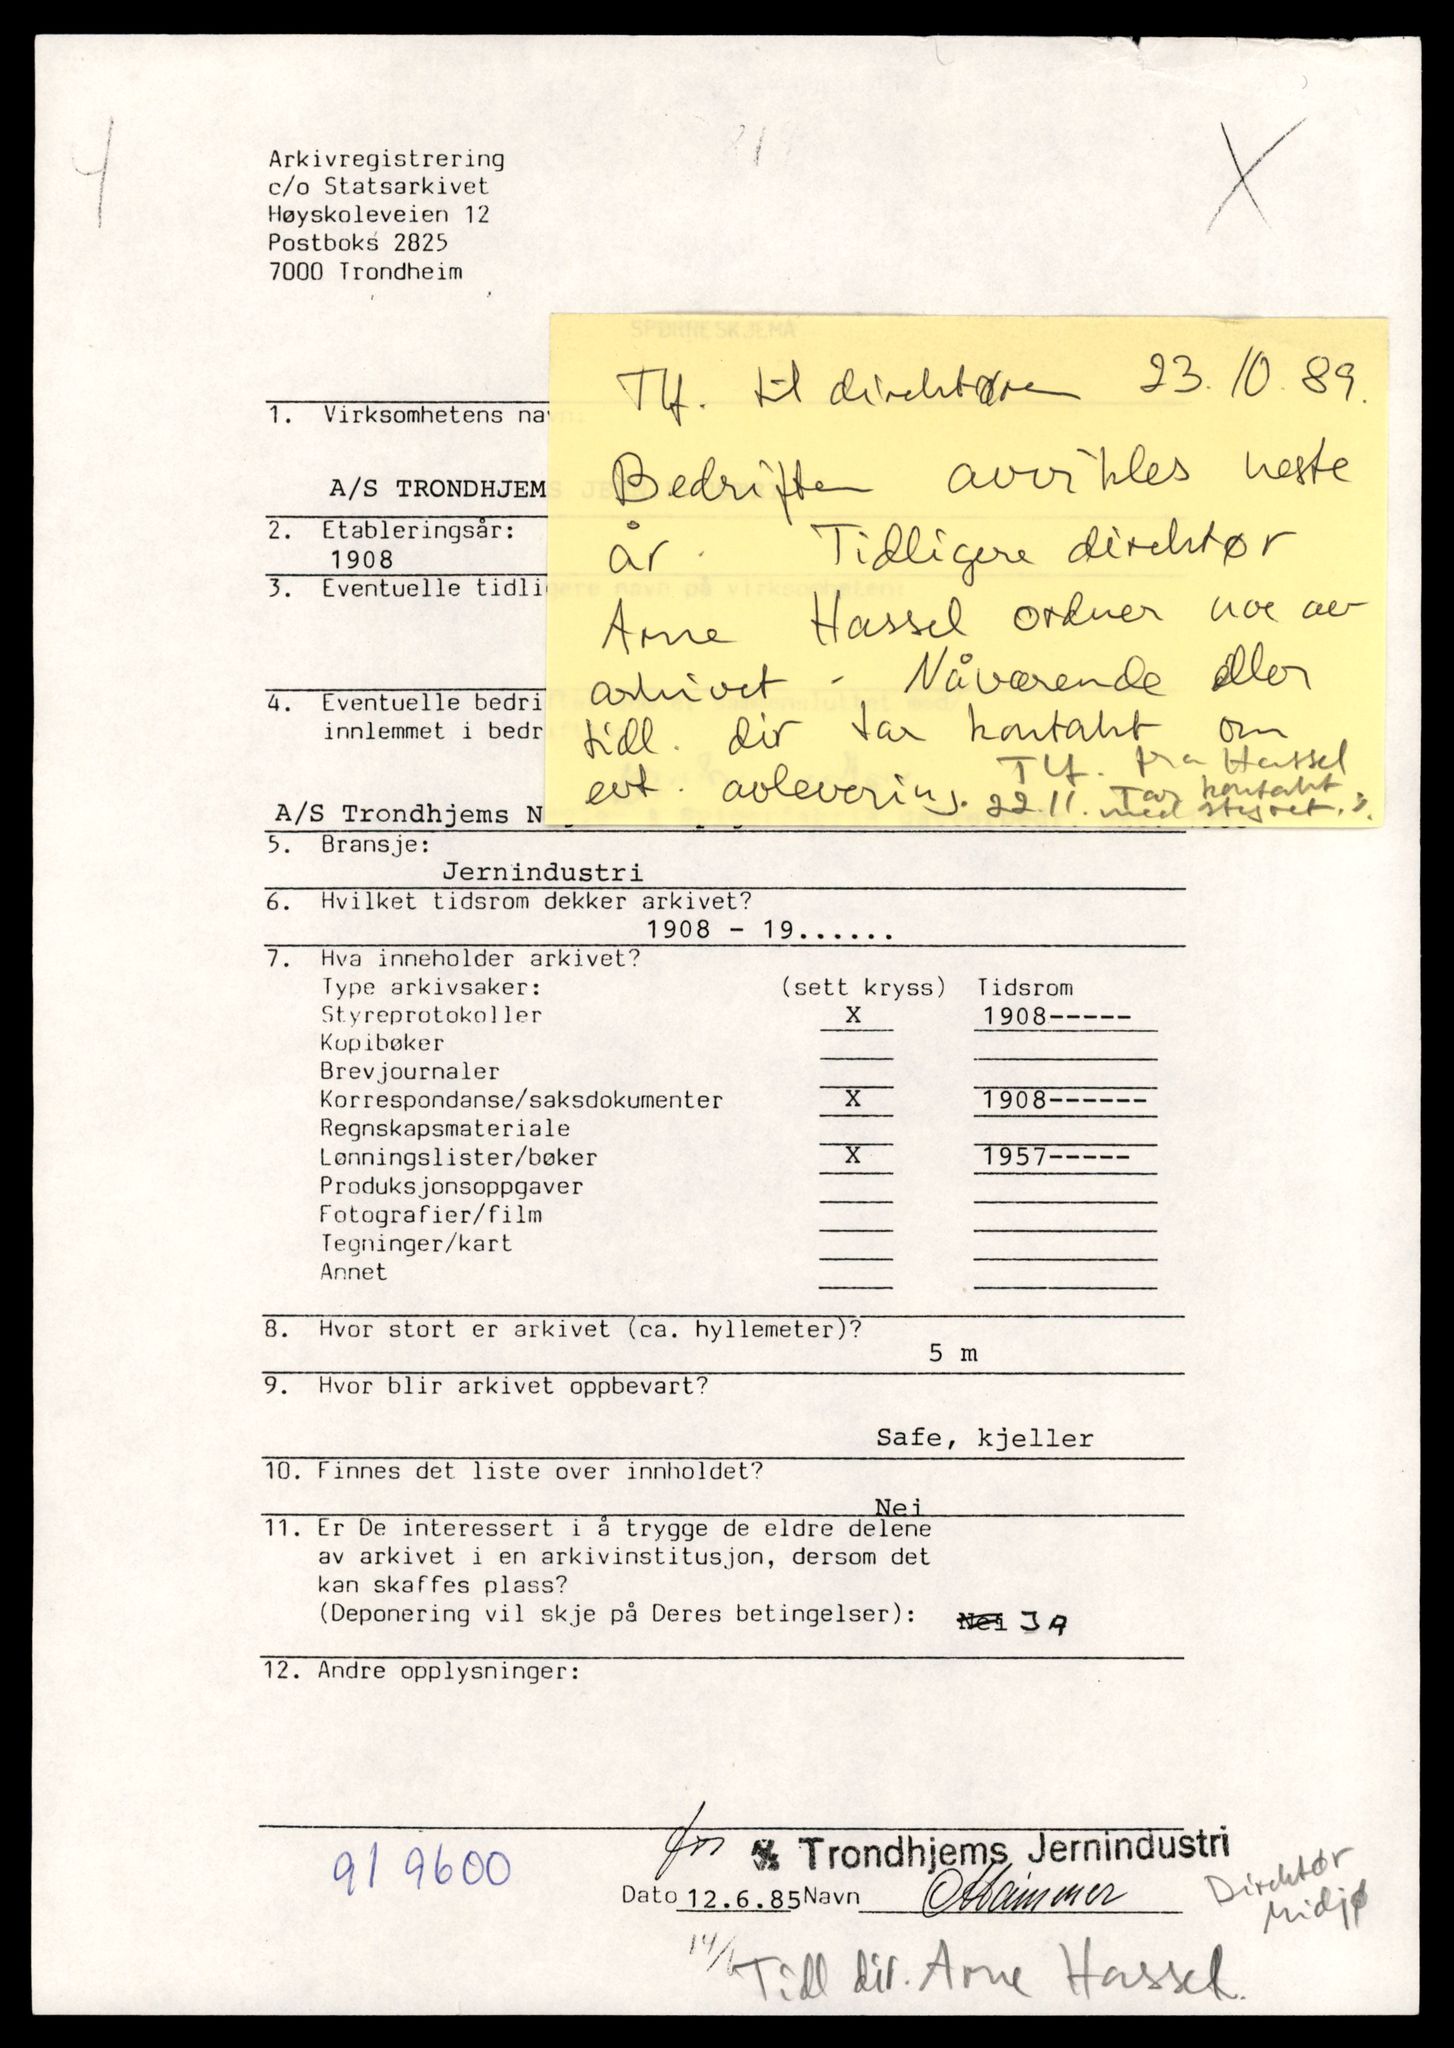 4
X
Arkivregistrering
c/o Statsarkivet
Høyskoleveien 12
Postboks 2825
7000 Trondheim
SPØRRESKJEMA
Tlf. til direktøren 23.10.89.
Bedriften avvikles neste
år. Tidligere direktør
Arne Hassel ordner noe av
arkivet - Nåværende eller
tidl. dir tar kontakt om
evt. avlevering.
Tlf. fra Hassel
22.11. Tar kontakt
med styret.
1. Virksomhetens navn:
A/S TRONDHJEMS JERNINDUSTRI
2. Etableringsår:
1908
3. Eventuelle tidligere navn på virksomheten:
4. Eventuelle bedri
innlemmet i bedr
A/S Trondhjems N
5. Bransje:
Jernindustri
6. Hvilket tidsrom dekker arkivet?
1908 - 19......
7. Hva inneholder arkivet?
Type arkivsaker: (sett kryss) Tidsrom
Styreprotokoller X 1908-----
Kopibøker
Brevjournaler
Korrespondanse/saksdokumenter X 1908------
Regnskapsmateriale
Lønningslister/bøker X 1957-----
Produksjonsoppgaver
Fotografier/film
Tegninger/kart
Annet
8. Hvor stort er arkivet (ca. hyllemeter)?
5 m
9. Hvor blir arkivet oppbevart?
Safe, kjeller
10. Finnes det liste over innholdet?
Nei
11. Er De interessert i å trygge de eldre delene
av arkivet i en arkivinstitusjon, dersom det
kan skaffes plass?
(Deponering vil skje på Deres betingelser): Nei JA
12. Andre opplysninger:
for A/S Trondhjems Jernindustri
919600
Dato 12.6.85 Navn
Direktør
Midjø
14/6
Tidl dir. Arne Hassel.